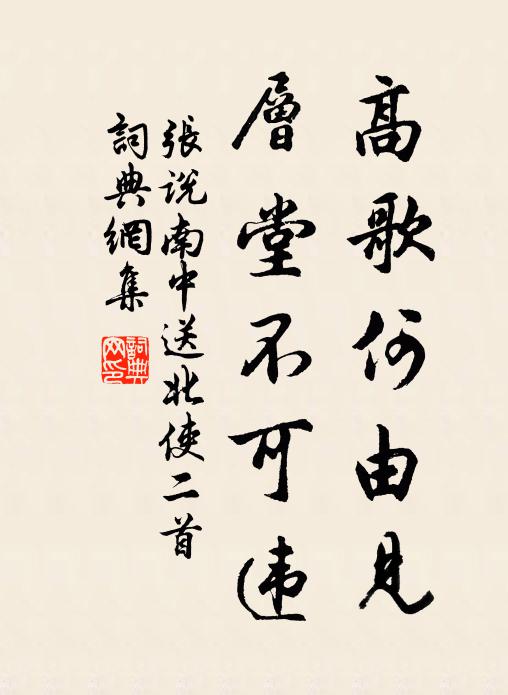 高歌何由見
層堂不可违
張说南中送北使二首
詞典網集
詞典网印